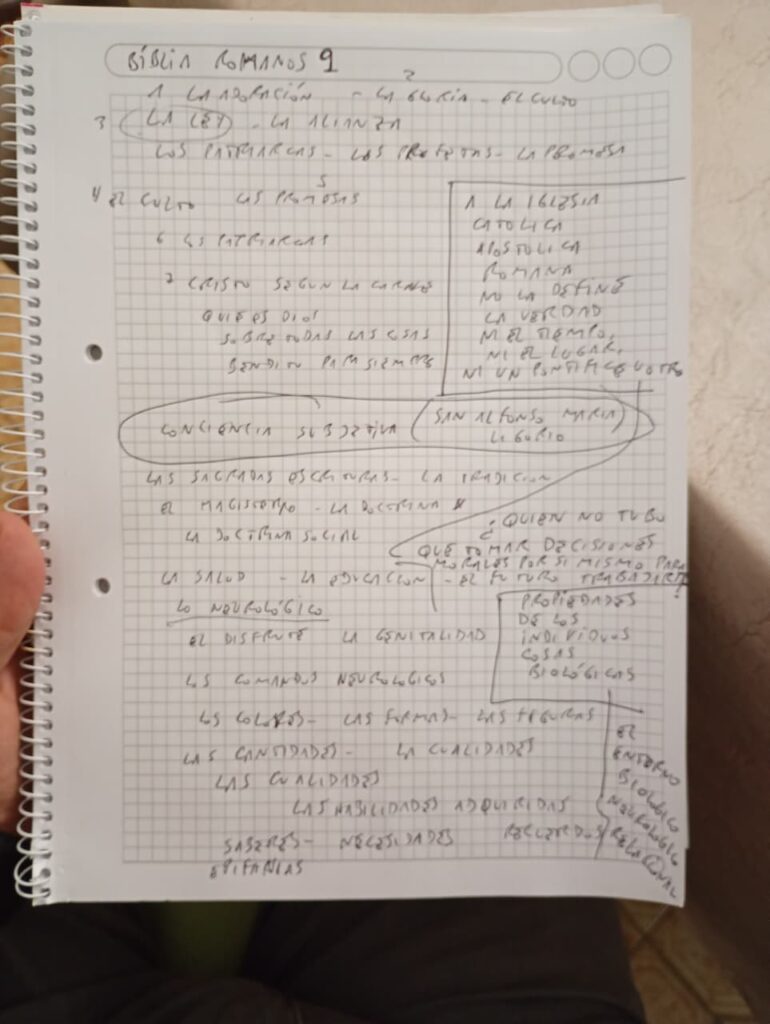 BÍBLIA ROMANOS 9
2
1 LA ADORACIÓN - LA GLORIA - EL CULTO
3 LA LEY - LA ALIANZA
LOS PATRIARCAS - LOS PROFETAS - LA PROMESA
5
4 EL CULTO LAS PROMESAS
6 LOS PATRIARCAS
7 CRISTO SEGUN LA CARNE
QUE ES DIOS
SOBRE TODAS LAS COSAS
BENDITO PARA SIEMPRE
A LA IGLESIA
CATOLICA
APOSTOLICA
ROMANA
NO LA DEFINE
LA VERDAD
NI EL TIEMPO,
NI EL LUGAR,
NI UN PONTIFICE U OTRO
CONCIENCIA SUBJETIVA (SAN ALFONSO MARIA
LIGORIO
LAS SAGRADAS ESCRITURAS - LA TRADICION
EL MAGISTERIO - LA DOCTRINA
LA DOCTRINA SOCIAL
¿QUIEN NO TUBO
QUE TOMAR DECISIONES
MORALES POR SI MISMO PARA
LA SALUD - LA EDUCACION - EL FUTURO
LO NEUROLÓGICO
EL DISFRUTE LA GENITALIDAD
PROPIEDADES
DE LOS
INDIVIDUOS
COSAS
BIOLÓGICAS
LOS COMANDOS NEUROLOGICOS
LOS COLORES - LAS FORMAS - LAS FIGURAS
LAS CANTIDADES - LA CUALIDADES
LAS CUALIDADES
LAS HABILIDADES ADQUIRIDAS
SABERES - NECESIDADES RECUERDOS
EPIFANIAS
EL
ENTORNO
BIOLOGICO
NEUROLOGICO
RELACIONAL